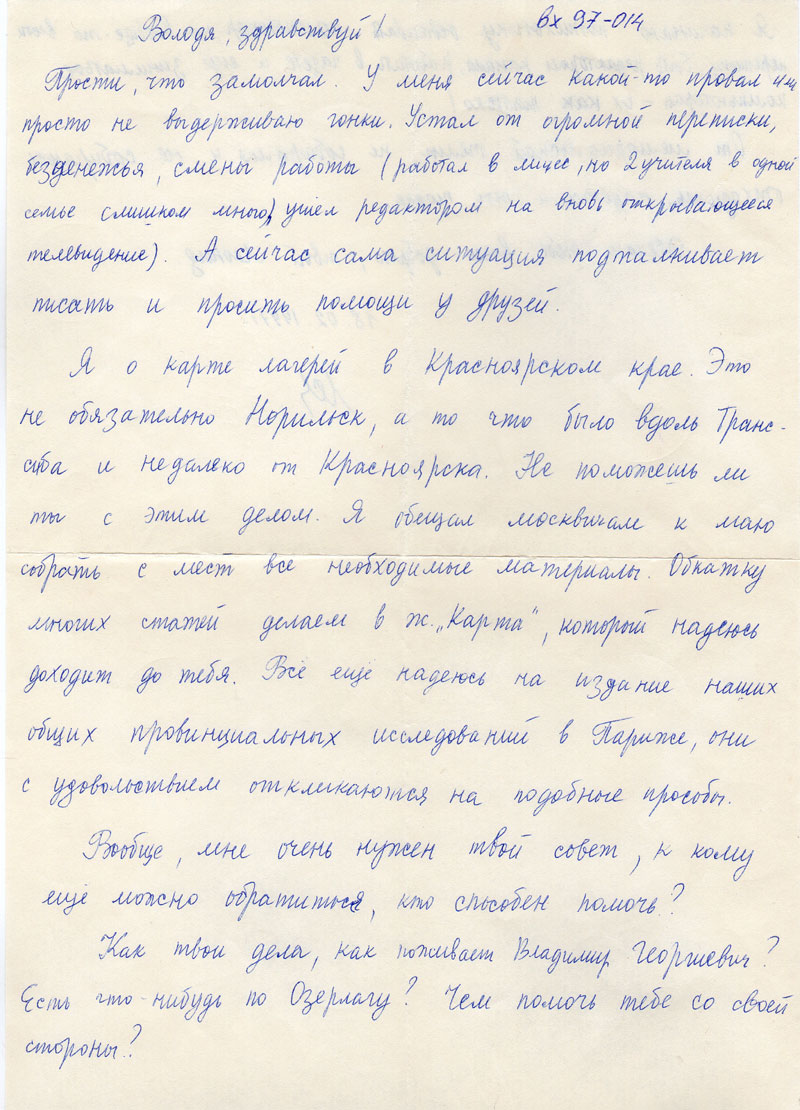 вх 97-014
Володя, здравствуй!
Прости, что замолчал. У меня сейчас какой-то провал или
просто не выдерживаю гонки. Устал от огромной переписки,
безденежья, смены работы (работал в лицее, но 2 учителя в одной
семье слишком много, ушел редактором на вновь открывающееся
телевидение). А сейчас сама ситуация подталкивает
писать и просить помощи у друзей.
Я о карте лагерей в Красноярском крае. Это
не обязательно Норильск, а то что было вдоль Транс-
сиба и недалеко от Красноярска. Не поможешь ли
ты с этим делом. Я обещал москвичам к маю
собрать с мест все необходимые материалы. Обкатку
многих статей делаем в ж. „Карта“, который надеюсь
доходит до тебя. Всё ещё надеюсь на издание наших
общих провинциальных исследований в Париже, они
с удовольствием откликаются на подобные просьбы.
Вообще, мне очень нужен твой совет, к кому
ещё можно обратиться, кто способен помочь?
Как твои дела, как поживает Владимир Георгиевич?
Есть что-нибудь по Озерлагу? Чем помочь тебе со своей
стороны?